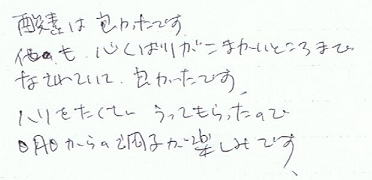 酸素は良かったです
他のも、心くばりがこまかいところまで
なされていて、良かったです。
ハリをたくさんうってもらったので
明日からの調子が楽しみです。